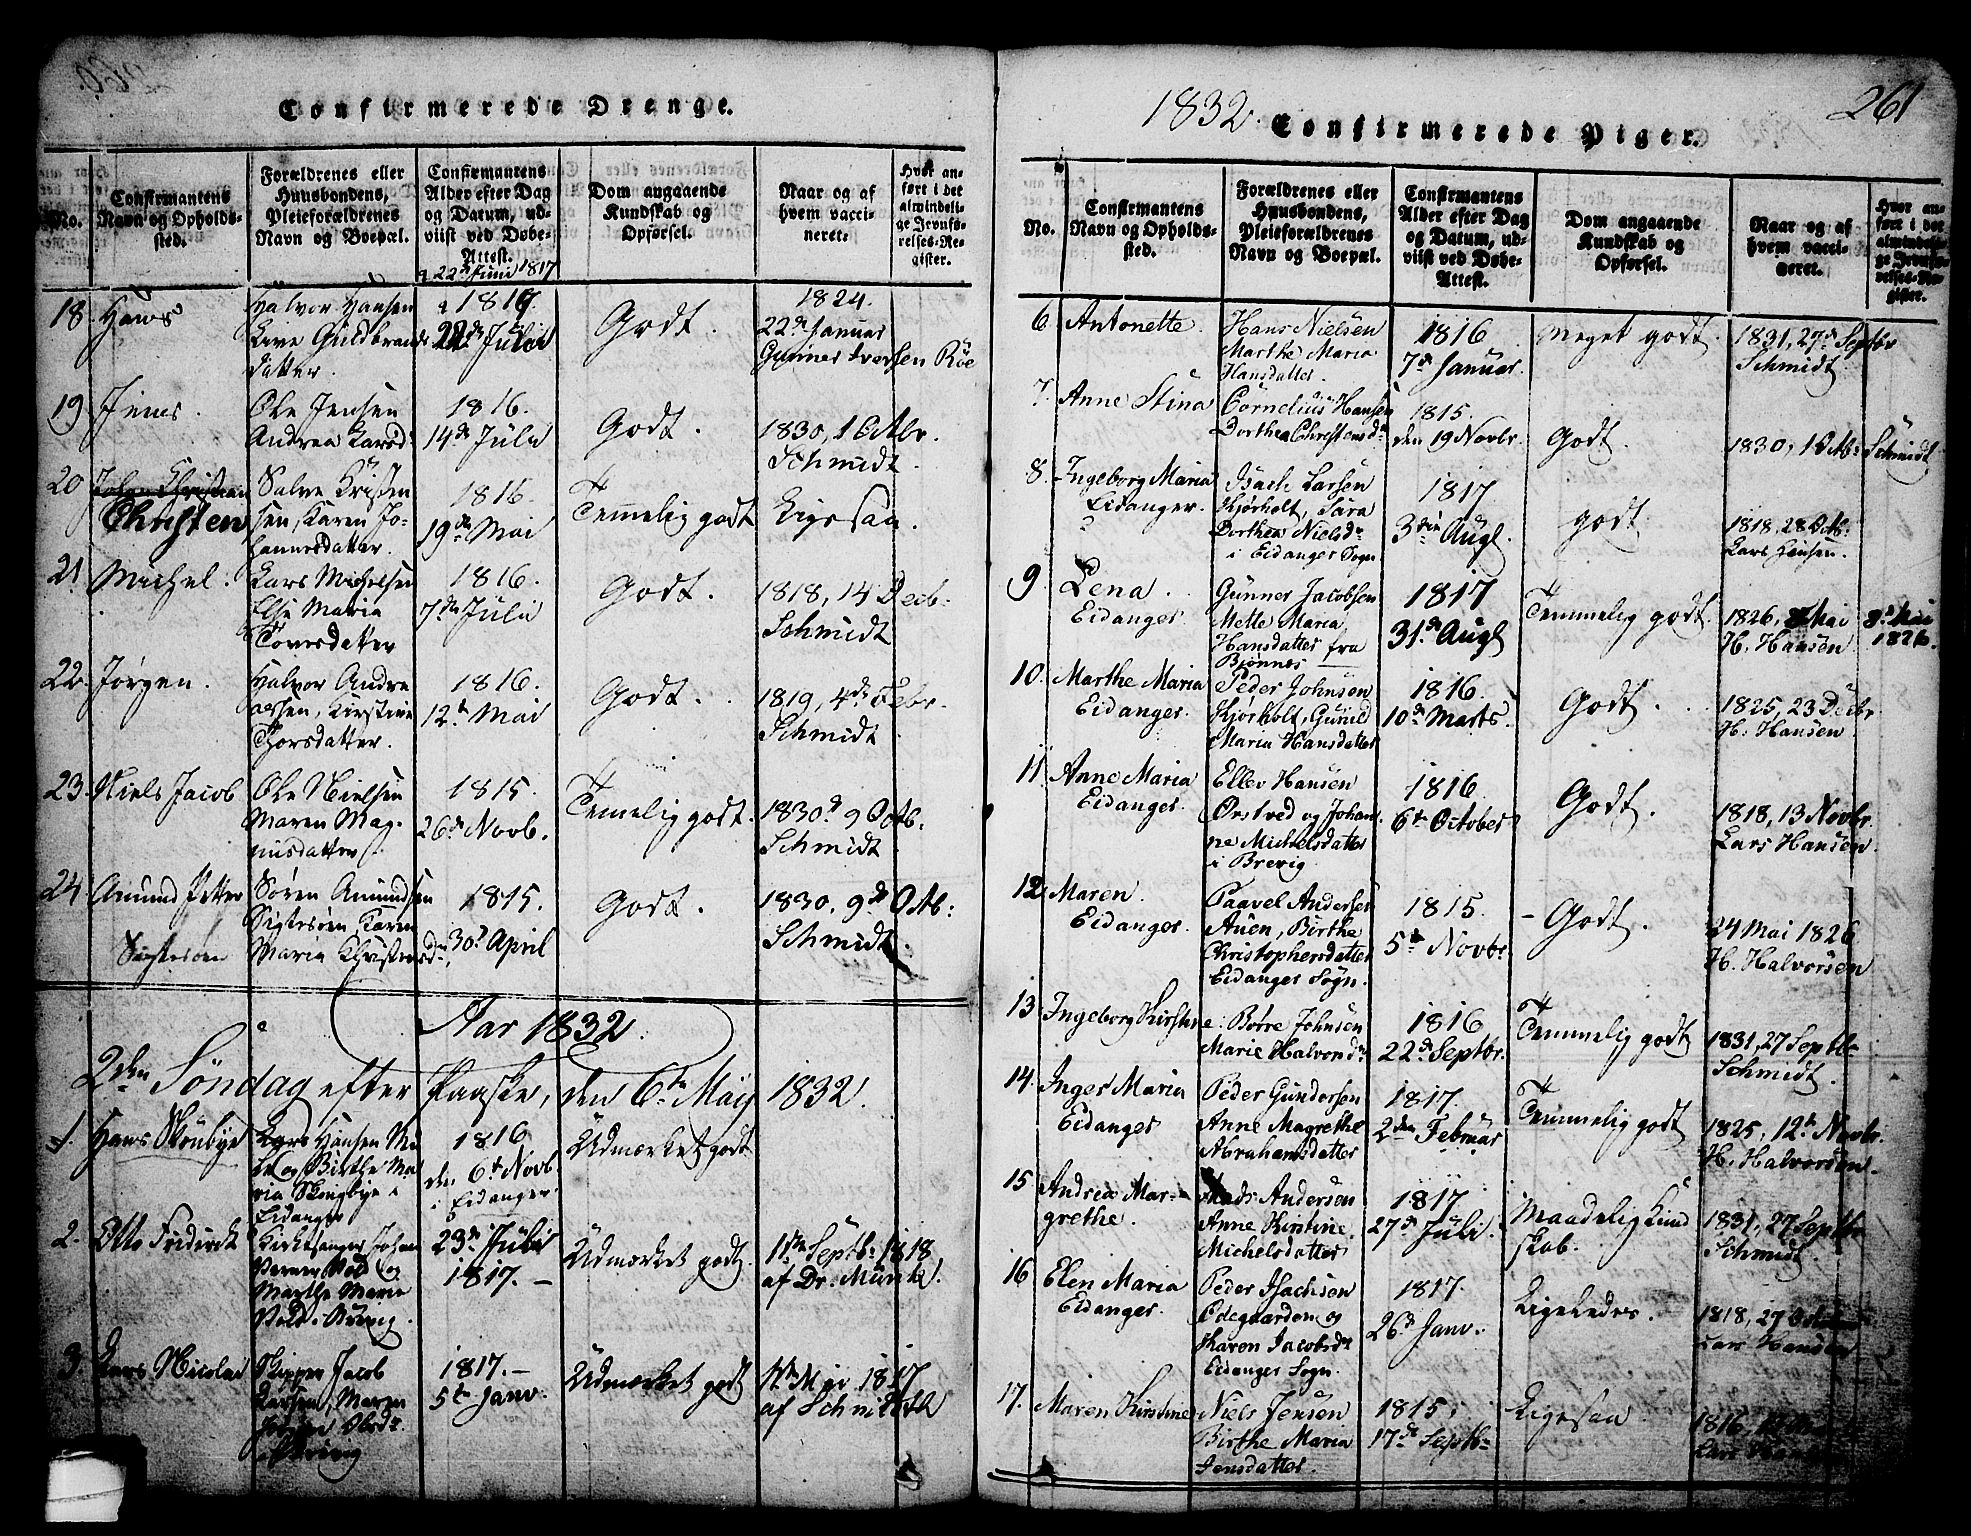 Confirmerede Drenge.
No.
Confirmantens
Navn og Opholds-
sted.
Forældrenes eller
Huusbondens,
Pleieforældrenes
Navn og Boepæl.
Confirmantens
Alder efter Dag
og Datum, ud-
viist ved Døbe-
Attest.
Dom angaaende
Kundskab og
Opførsel.
Naar og af
hvem vacci-
neret.
Hvor an-
ført i det
almindeli-
ge Jevnfø-
relses-Re-
gister.
22de Juni 1817
18. Hans
Halvor Hansen
Live Guldbrands
datter.
1816
22de Juli
Godt.
1824.
22de Januar
Gunner Iversen Röe
19. Jens.
Ole Jensen
Andrea Larsd.
1816.
14de Juli
Godt.
1830, 1 Octbr.
Schmidt.
20 Johan Christian
Christen
Salve Kristen
sen Karen Jo-
hannesdatter.
1816.
19de Mai
Temmelig godt
Ligesaa.
21 Michel.
Lars Michelsen
Else Maria
Toresdatter
1816.
7de Juli
Godt.
1818, 14 Decb.
Schmidt
22. Jörgen.
Halvor Andre
assen, Kirstine
Thorsdatter.
1816.
12te Mai
Godt.
1819, 4de Febr.
Schmidt
23. Niels Jacob
Ole Nielsen
Maren Mag-
nusdatter
1815.
26de Novb.
Temelig godt.
1830 9 Octb.
Schmidt
24. Amund Petter
Sigtesøen
Sören Amundsen
Sigtesöen Karen
Maria Christensd.
1815.
30te April
Godt.
1830, 9de Octb:
Schmidt.
Aar 1832.
2den Söndag efter Paaske, den 6te Maij 1832.
1. Hans Skrubye
Lars Hansen
og Birthe Ma
ria i
Eidanger
1816
den 6te Novb
i Eidanger
Udmærket godt
2. Otto Fridrick
Kirkesanger Johan
Verner Vold og
Marthe Marie
Vold
23de Juli
1817. –
Udmærket godt.
11te Septb: 1818,
af Dr. Munk.
3. Lars Nicolai
Skipper Jacob
Larsen, Maren
1817. –
5te Janv.
Udmærket godt
1817
af Schmidt
1832
Confirmerede Piger.
261
No.
Confirmantens
Navn og Opholds-
sted.
Forældrenes eller
Huusbondens,
Pleieforældrenes
Navn og Boepæl.
Confirmantens
Alder efter Dag
og Datum, ud-
viist ved Døbe-
Attest.
Dom angaaende
Kundskab og
Opførsel.
Naar og af
hvem vacci-
neret.
Hvor an-
ført i det
almindeli-
ge Jevnfø-
relses-Re-
gister.
6. Antonette.
Hans Nielsen
Marthe Maria
Hansdatter.
1816
7de Januar.
Meget godt.
1831, 27de Septbr
Schmidt.
7. Anne Stina
Cornelius Hansen
Dorthea Christensd.
1815.
den 19 Novbr.
Godt.
1830, 1 Octb: Schmidt
8. Ingeborg Maria
Eidanger.
Isach Larsen
Kjörholt, Sara
Dorthea Nielsd.
i Eidanger Sogn
1817
3die Augl.
godt.
1818. 28 Octb:
Lars Hansen.
9. Lena.
Eidanger.
Gunner Jacobsen
Mette Maria
Hansdatter fra
Bjönnes
1817
31te Augl
Temmelig godt.
1826, 8 Mai
H. Hansen
8de Mai
1826.
10. Marthe Maria
Eidanger.
Peder Johnsen
Kjörholt, Gunild
Maria Hansdatter
1816.
10de Marts.
Godt.
1825, 23 Decbr
H. Hansen
11. Anne Maria
Eidanger.
Ellev Hansen
Örstved og Johan
ne Michelsdatter
i Brevig
1816
6te October
Godt.
1818, 13 Novbr.
Lars Hansen.
12. Maren.
Eidanger.
Paavel Andersen
Auen, Birthe
Christophersdatter
Eidanger Sogn.
1815.
5te Novbr.
Godt.
24 Mai 1826
H. Halvorsen
13. Ingeborg Kirstine.
Börre Johnsen
Marie Halvorsd.
1816
22de Septbr.
Temmelig godt
1831, 27 Septb.
Schmidt.
14. Inger Maria
Eidanger
Peder Gundersen
Anne Magrethe
Abrahamsdatter
1817.
2den Februar
Temmelig godt
1825, 12te Novbr.
H. Halvorsen.
15 Andrea Mar-
grethe.
Mads Andersen
Anne Kirstine
Michelsdatter
1817
27de Juli.
Maadelig Kund
skab.
1831, 27 Septbr
Schmidt
16 Elen Maria
Eidanger.
Peder Isachsen
Ödegaarden og
Karen Jacobsd.
Eidanger Sogn.
1817.
26de Janv.
Ligeledes.
1818, 27 October
Lars Hansen
17. Maren Kirstine
Niels Jensen
Birthe Maria
Jensdatter.
1815,
17de Septb.
Ligesaa.
1816,
Lars Hansen